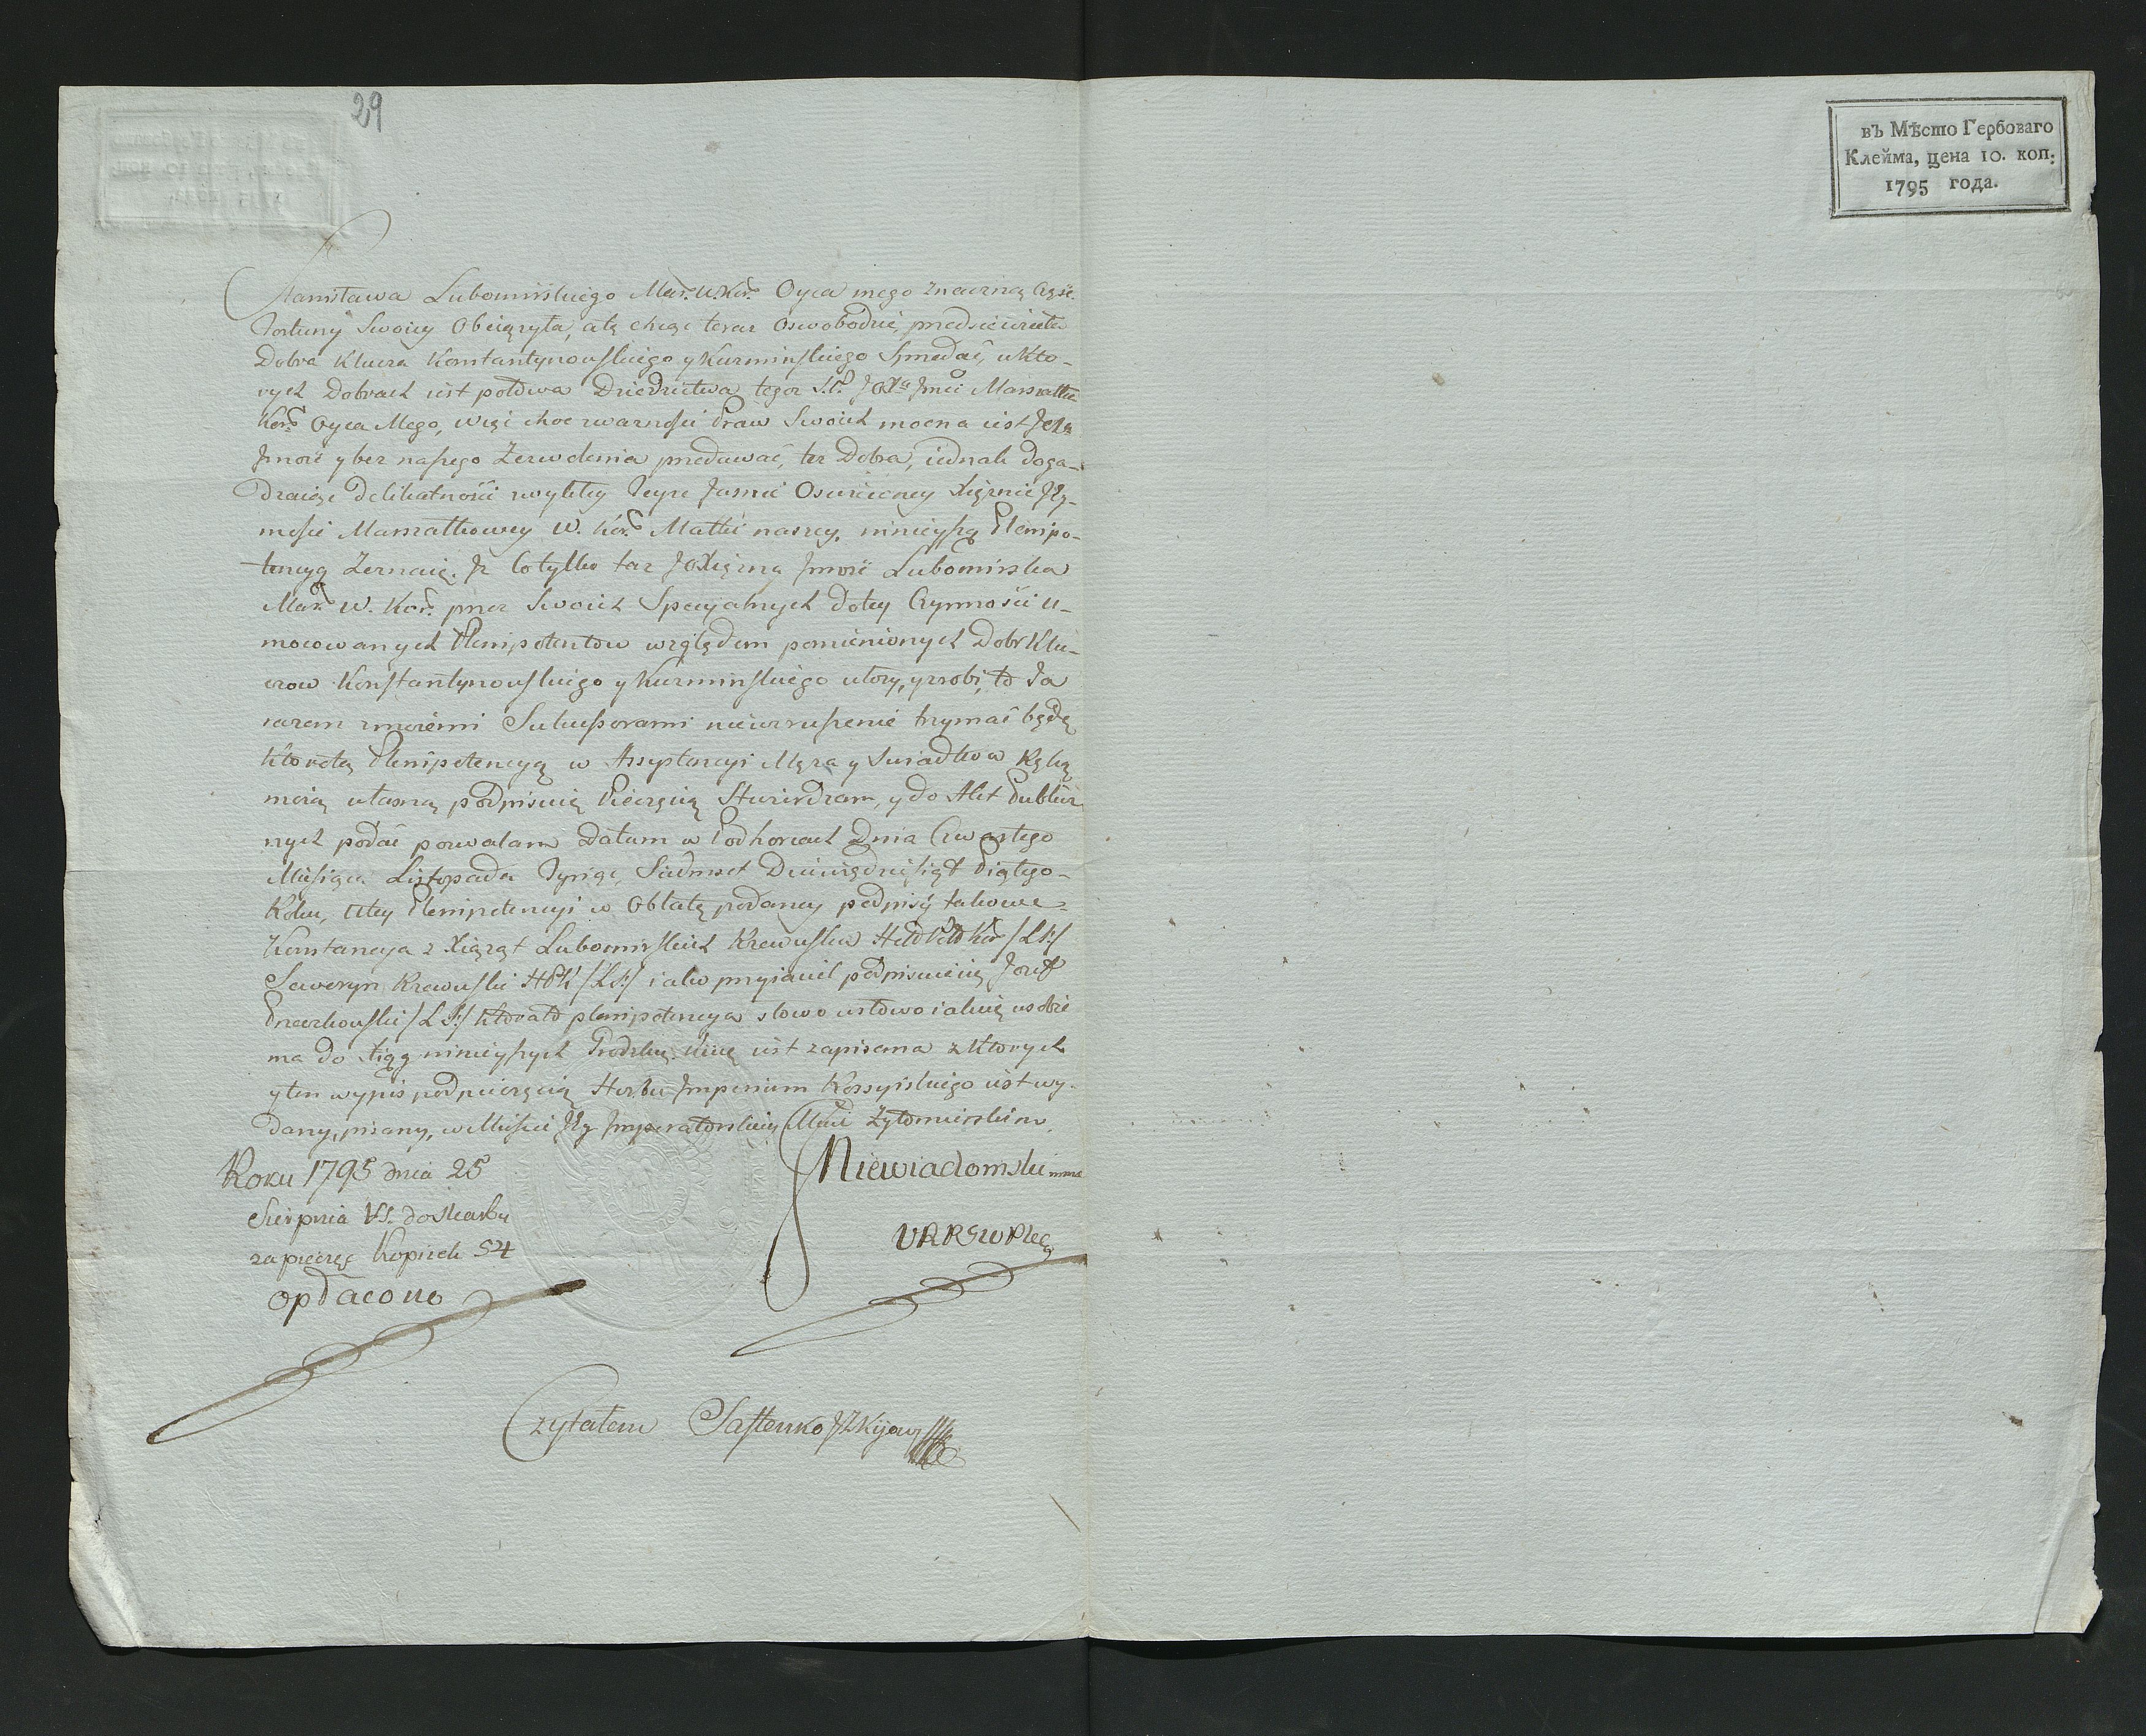 29
въ Мѣсто Гербоваго
Клейма, цена 10. коп:
1795 года.
Stanisława Lubomirskiego Mar: W. Kor: Oyca mego znaczną Częśc
Fortuny Swoiey Obciązyła, a tę chcąc teraz Oswobodzic, przedsięwzieła
Dobra Klucza Konstantynowskiego y Kuzminskiego Sprzedać, w Kto-
rych Dobrach iest połowa Dziedzictwa tegoż S.P. JOXcia Jmci Marszałka
Kor: Oyca Mego, więc choc zwaznosci Praw Swoich mocna iest JOXa
Jmość y bez naszego Zezwolenia przedawać, te Dobra, iednak doga-
dzaiąc Delikatności zwykłey Teyże Jasnie Oswieconey Xięznie Jey-
mosci Marszałkowey W. Kor: Matki naszey, ninieyszą Plenipo-
tencyą Zeznaię. Iz Cotylko taz JOXięzna Jmość Lubomirska
Mar: W. Kor: przez Swoich Specyalnych do tey Czynności U-
mocowanych Plenipotentow względem pomienionych Dobr Klu-
czow Konstantynowskiego y Kuzminskiego ułozy, y zrobi, to Ja
razem zmoiemi Sukcessorami niewzruszenie trzymać będę
Ktorętę Plenipotencyą w Assystencyi Męza y Swiadkow Ręką
moią własną podpisuię Pieczęcią Stwierdzam, y do Akt Publicz
nych podać pozwalam Datum w Podhorcach Dnia Czwartego
Miesiąca Listopada Tysiąc Siedmset Dziewięcdziesiąt Piątego-
Roku, U tey Plenipotencyi w Oblatę podaney podpisy takowe=
Konstancya z Xiąząt Lubomirskich Rzewuska HetPolKor /LS:/
Seweryn Rzewuski HPK /LS:/ iako przyiaciel podpisuię się Jozef
Drzewiecki /LS:/ Ktorato plenipotencya słowo wsłowo iak się w sobie
ma do Xiąg ninieyszych Grodzkich iest zapisana z Ktorych
y ten wypis pod pieczęcią Herbu Imperium Rossyiskiego iest wy-
dany, pisany, w Miescie Jey Imperatorskiey Mści Zytomierskim.
Roku 1795 dnia 25
Sierpnia VS. do Skarbu
za pieczęć Kopieek 54
opłacono
Niewiadomski mmp
VRRGWPlec
Czytałem Sastenko JZKijow